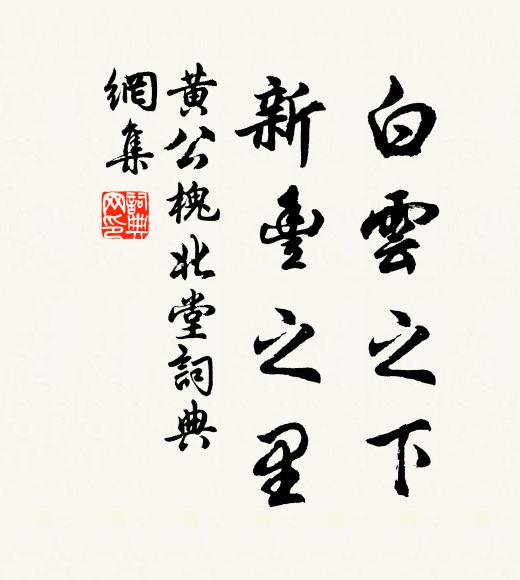 白雲之下
新豊之里
黄公槐北堂詞典
網集
詞典
网印